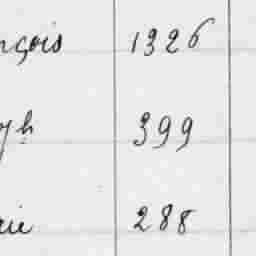 nçois 1326
ph 399
rie 288